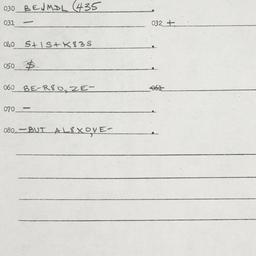 030 BEJMDL (435.
031 — 032 +
040 S+IS+K835.
050 $.
060 BE-R80,ZE- 062
070 — .
080 —BUT AL8XOVE-.